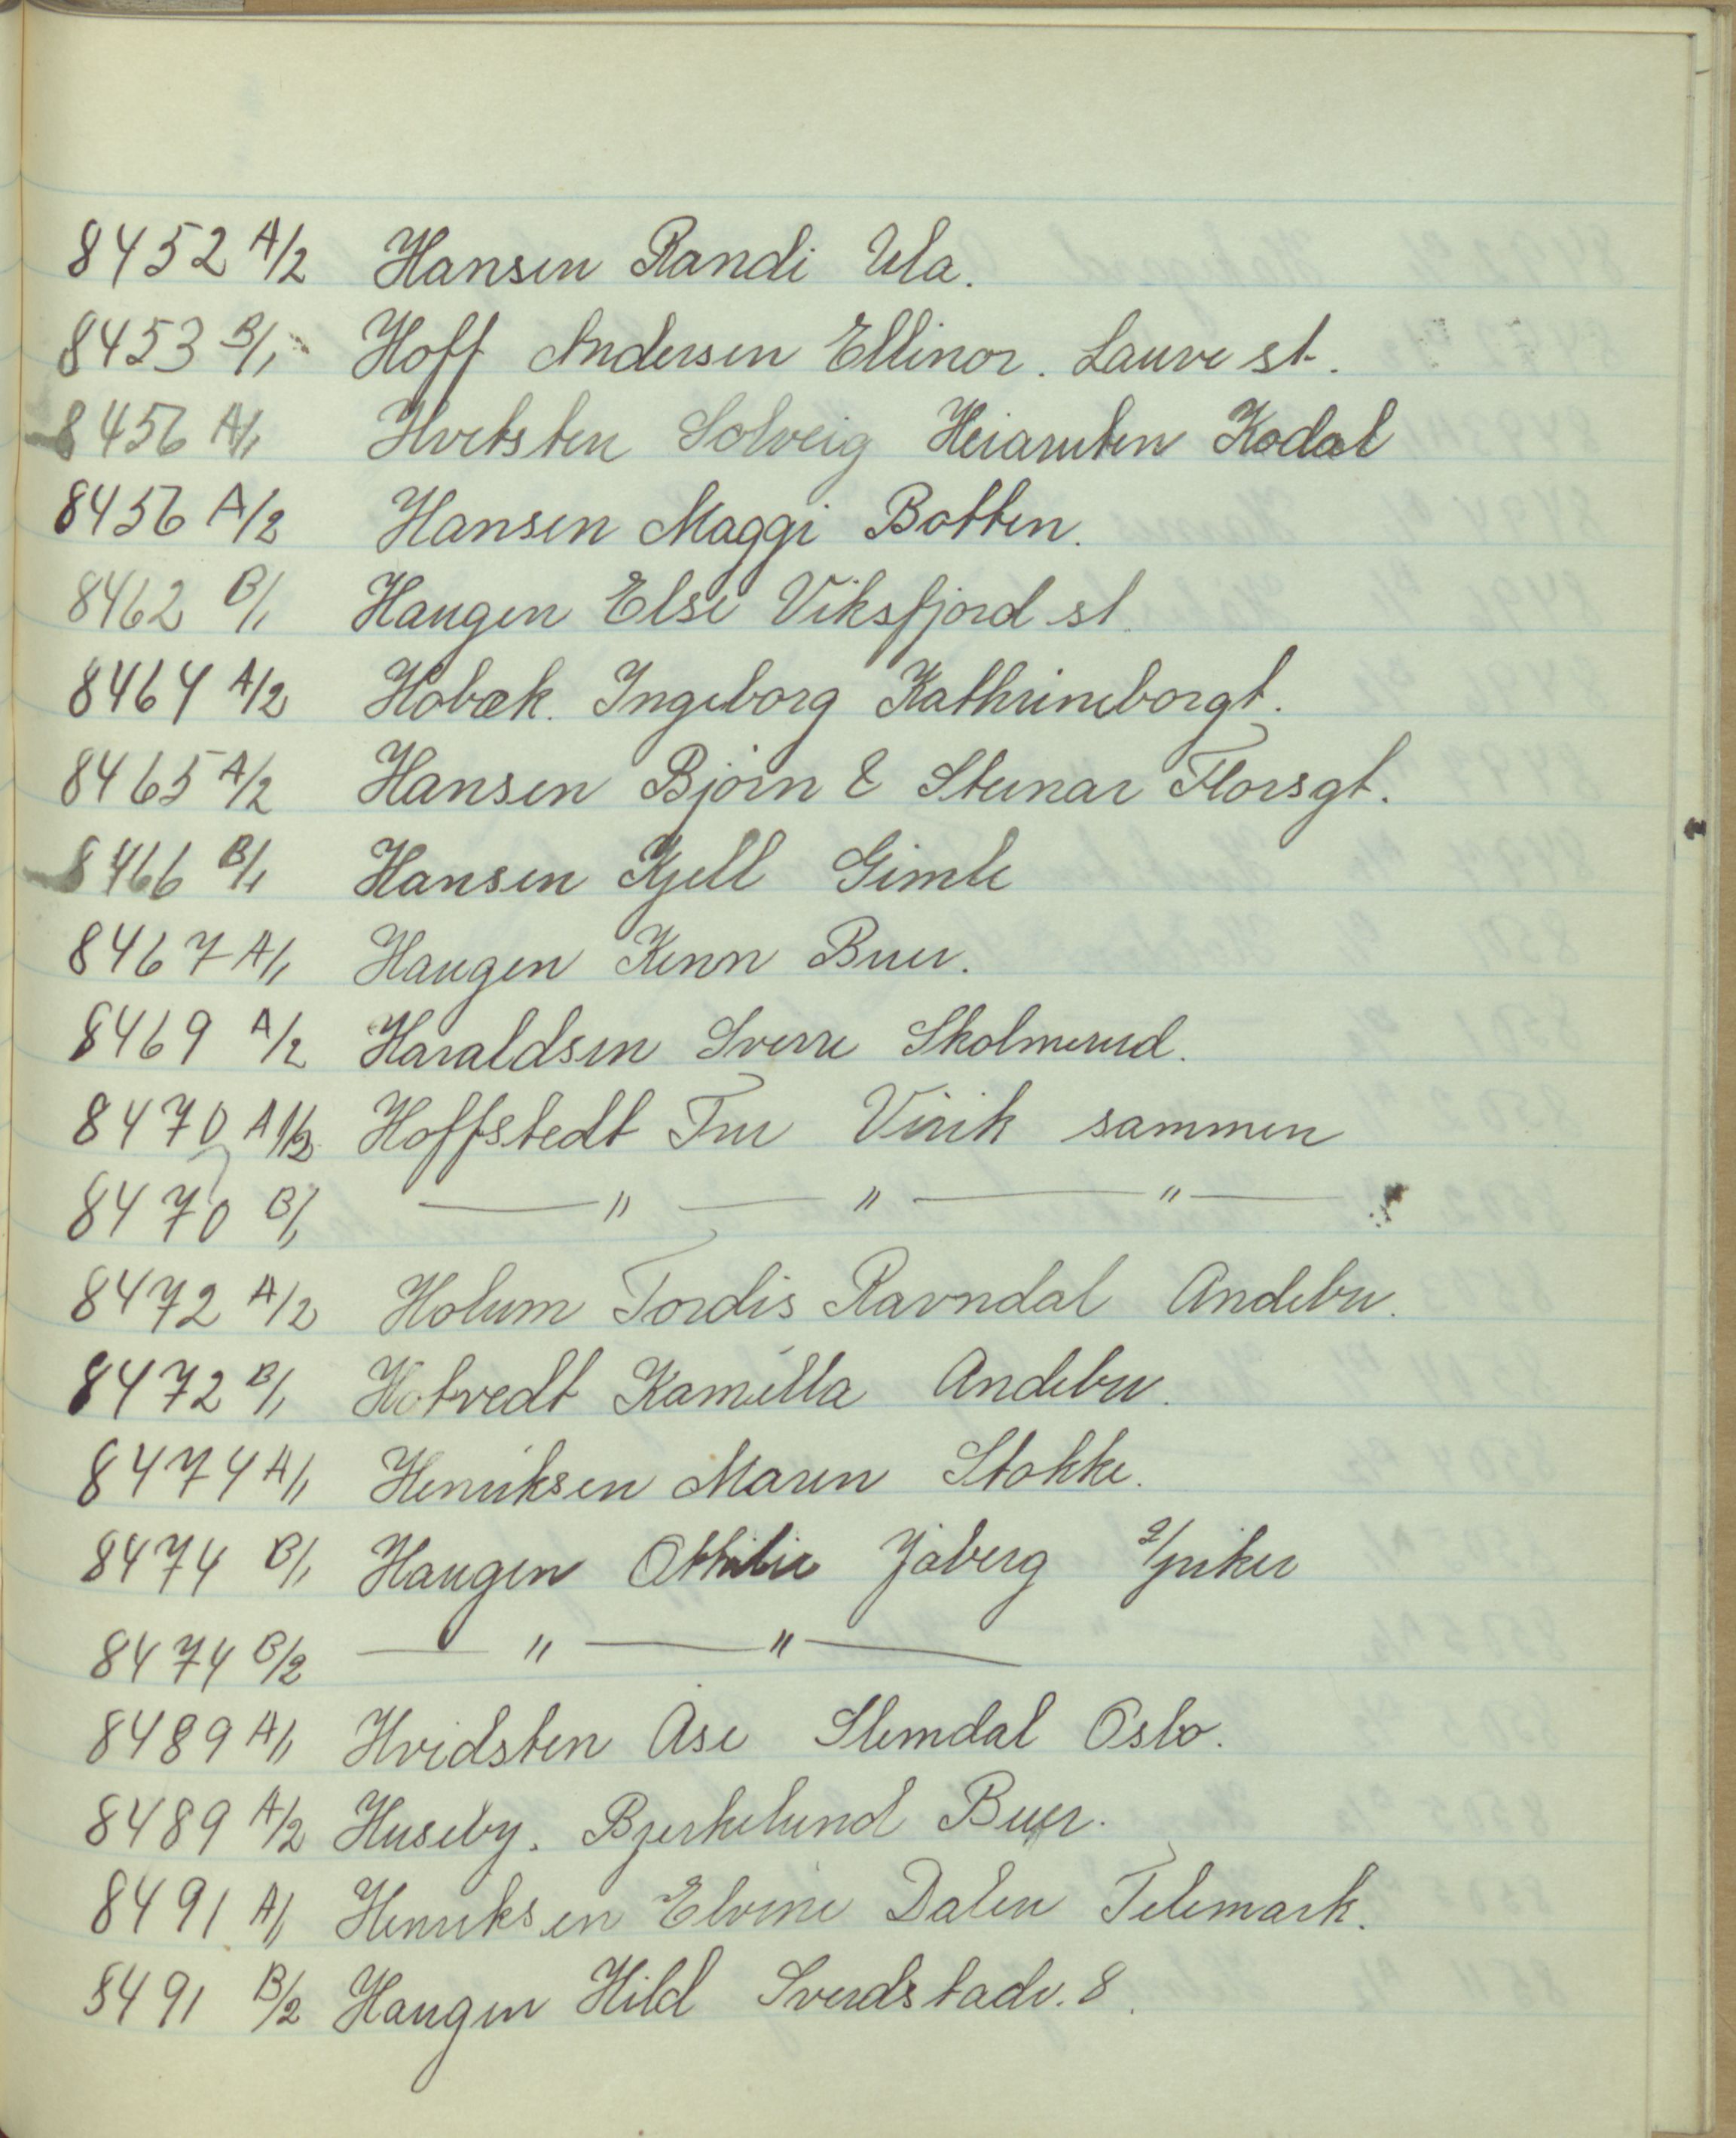 8452 A/2 Hansen Randi Ula.
8453 B/1 Hoff Andersen Ellinor. Lauve st.
8456 A/1 Hvitsten Solveig Heiaruten Kodal
8456 A/2 Hansen Maggi Botten.
8462 B/1 Haugen Else Viksfjord st.
8464 A/2 Hobæk. Ingeborg Kathrineborgt.
8465 A/2 Hansen Bjørn & Steinar Florsgt.
8466 B/1 Hansen Kjell Gimle
8467 A/1 Haugen Kenn Buer.
8469 A/2 Haraldsen Sverre Skolmerud.
8470 A 1/2 Hoffstedt Fru Virik sammen
8470 B/1 — " — " — " —
8472 A/2 Holum Tordis Ravndal Andebu.
8472 B/1 Hotvedt Kamilla Andebu.
8474 A/1 Henriksen Maren Stokke.
8474 B/1 Haugen Othilie Jåberg 2/piker
8474 B/2 — " — " —
8489 A/1 Hvidsten Åse Slemdal Oslo.
8489 A/2 Huseby. Bjerkelund Buer.
8491 A/1 Henriksen Elvine Dalen Telemark.
8491 B/2 Haugen Hild Sverdstadv. 8.